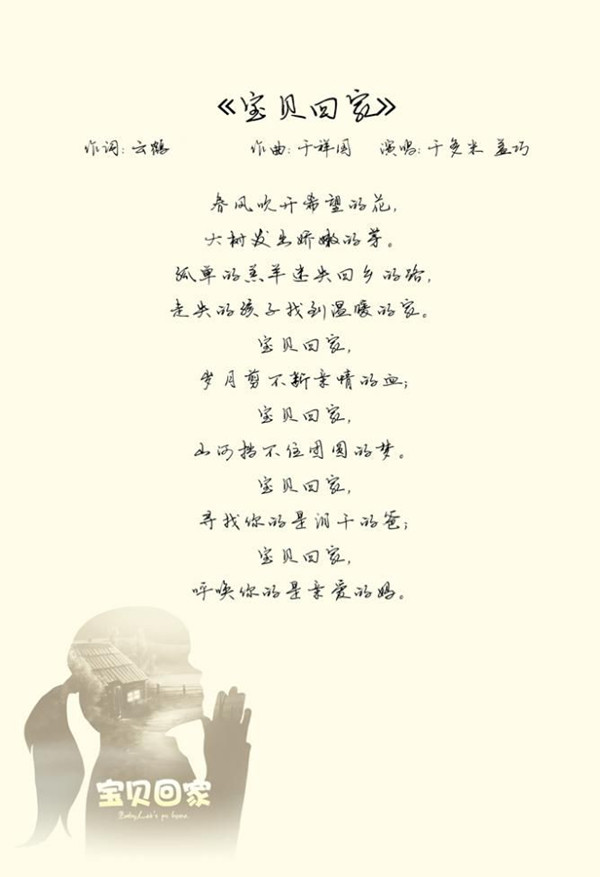 《宝贝回家》
作词: 云鹤 作曲: 于祥国 演唱: 于多米 孟巧
春风吹开希望的花,
大树发出娇嫩的芽。
孤单的羔羊迷失回乡的路,
走失的孩子找到温暖的家。
宝贝回家,
岁月剪不断亲情的血;
宝贝回家,
山河挡不住团圆的梦。
宝贝回家,
寻找你的是泪干的爸;
宝贝回家,
呼唤你的是亲爱的妈。
宝贝回家
Baby,Let's go home